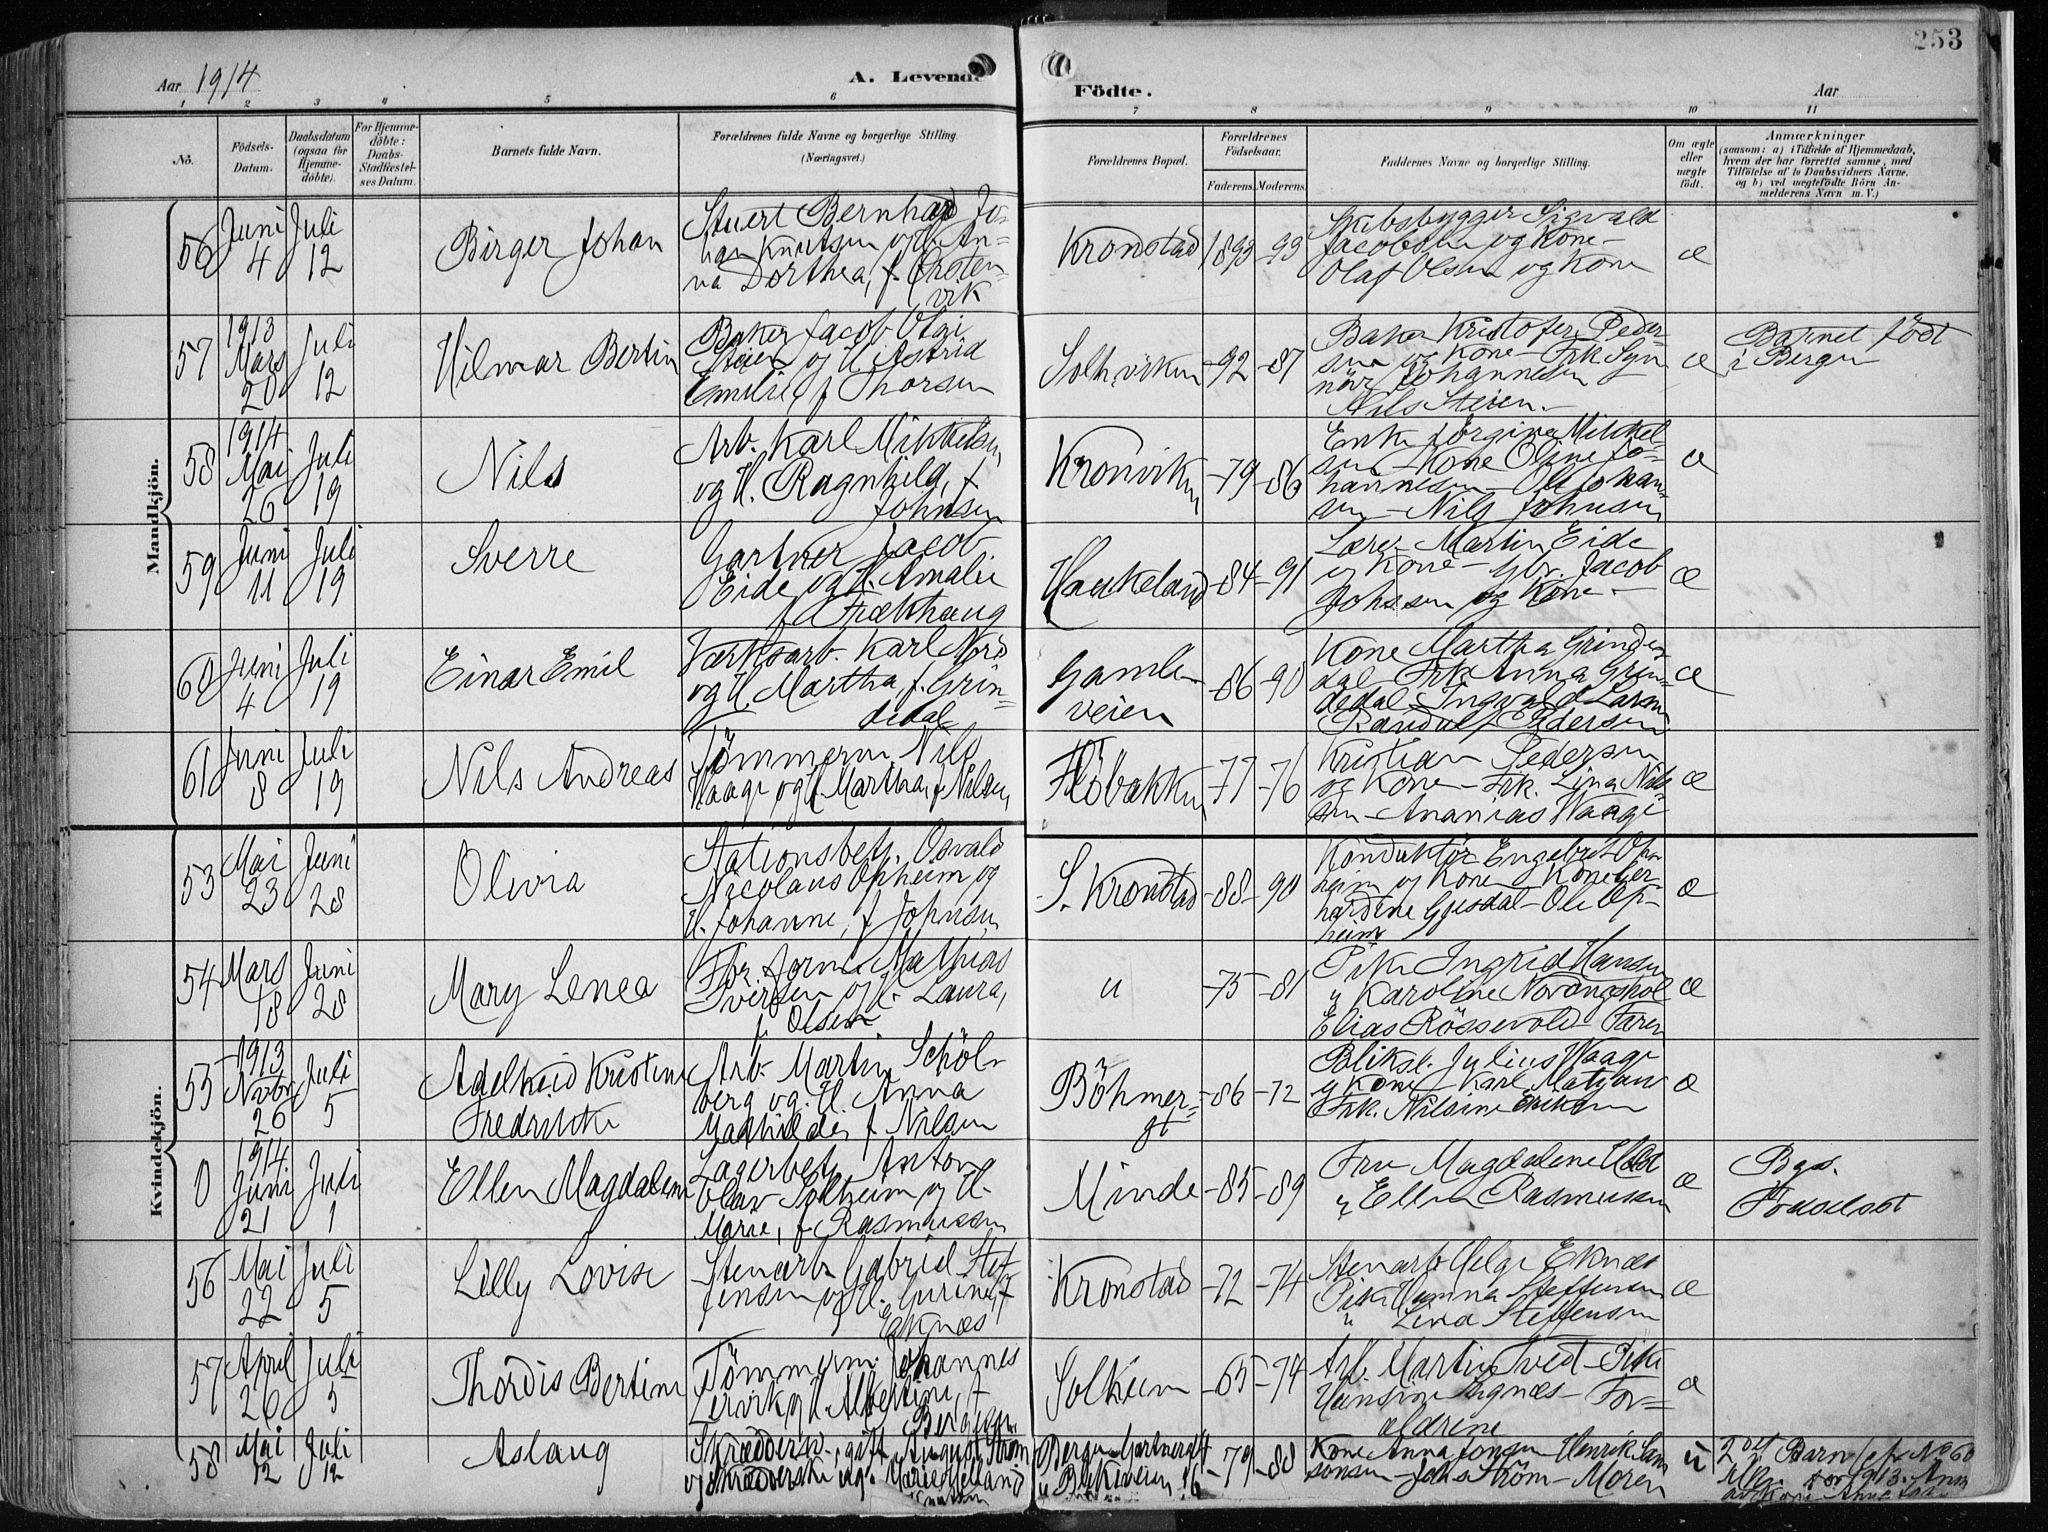 253
Aar 1914
A. Levende
Födte.
Aar
1 2 3 4 5 6 7 8 9 10 11
No.
Födsels-
Datum.
Daabsdatum
(ogsaa for
Hjemme-
döbte).
For Hjemme-
döbte:
Daabs-
Stadfæstel-
ses Datum.
Barnets fulde Navn.
Forældrenes fulde Navne og borgerlige Stilling.
(Næringsvei.)
Forældrenes Bopæl.
Forældrenes
Födselsaar.
Faderens. Moderens.
Faddernes Navne og borgerlige Stilling.
Om ægte
eller
uægte
födt.
Anmærkninger
(saasom: a) i Tilfælde af Hjemmedaab,
hvem der har forrettet samme, med
Tilföielse af to Daabsvidners Navne.
og b) ved uægtefödte Börn An-
melderens Navn m. V.)
Mandkjön.
56 Juni 4 Juli 12
Birger Johan
Stuert Bernhard Jo-
han Knutsen og H. An-
na Dorthea, f. Örsten-
vik
Kronstad 1893 -93
Skibsbygger Sigvald
Jacobsen og Kone -
Olaf Olsen og Kone
æ
57 1913 Mars 20 Juli 12
Hilmar Bertin
Baker Jacob Olai
Steien og H. Astrid
Emilie, f. Thorsen
Solhviken -92 -87
Baker Kristofer Peder-
sen og Kone - Frk. Syn
növ Johannesen
Nils Steien. -
æ
Barnet födt
i Bergen
58 1914 Mai 26 Juli 19
Nils
Arb. Karl Mikkelsen
og H. Ragnhild, f.
Johnsen
Kronviken -79 -86
Enke Jörgine Mikkel
sen - Kone Oline Jo-
hannesen - Ole Johan-
sen - Nils Johnsen
æ
59 Juni 11 Juli 19
Sverre
Gartner Jacob
Eide og H. Amalie
f. Trækhaug
Haukeland -84 -91
Lærer Martin Eide
og Kone - Gbr. Jacob
og Kone. -
æ
60 Juni 4 Juli 19
Einar Emil
Værksarb. Karl Nord
og H. Martha, f. Grin-
dedal
Gamle-
veien
-86 -90
Kone Martha Grinde
dal - Frk. Anna Grin-
dedal - Ingvald Larsen
Randulf Pedersen
æ
61 Juni 8 Juli 19
Nils Andreas
Tömmerm. Nils
Waage og H. Martha, f. Nilsen
Flöbakken -77 -76
Kristian Pedersen
og Kone - Frk. Lina Nil-
sen - Ananias Waage
æ
Kvindekjön.
53 Mai 23 Juni 28
Olivia
Stationsbetj. Osvald
Nicolaus Opheim og
H. Johanne, f. Johnsen
S. Kronstad -88 -90
Konduktör Engebret Op-
heim og Kone - Kone Ger-
hardine Gjesdal - Ole Op-
heim
æ
54 Mars 18 Juni 28
Mary Lenea
Mathias
Iversen og H. Laura,
f. Olsen
" -75 -81
Pike Ingrid Hansen
" Karoline
Elias Rössevold - Faren
æ
55 1913 Novbr 26 Juli 5
Adelheid Kristine
Fredrikke
Arb. Martin Schöl-
berg og H. Anna
f. Nilsen
Böhmer-
gt
-86 -72
Bliksl. Julius Waage
og Kone - Karl
Frk. Nilsine Eriksen
æ
0 1914 Juni 21 Juli 1
Ellen Magdalene
Lagerbetj. Anton
Olav Solheim og H.
Marie, f. Rasmussen
Minde -85 -89
Fru Magdalene Holst
" Ellen Rasmussen
æ
Bgs.
Födselsst
56 Mai 22 Juli 5
Lilly Lovise
Stenarb. Gabriel Stef
fensen og H. Gurine, f.
Eknæs
Kronstad -72 -74
Stenarb. Helge Eknæs
Pike Hanna Steffensen
" Lina Steffensen
æ
57 April 26 Juli 5
Thordis Bertine
Tömmerm. Johannes
Lervik og H. Albertine, f.
Bergesen
Solheim -65 -74
Arb. Martin Tved - Pike
Hansine Agnæs - For-
ældrene
æ
58 Mai 12 Juli 12
Aslaug
Skræddersv., gift, August Ström
og Skrædderske ug. Marie Helland
Knutsen
-79 -88
Kone Anna Jonsen - Henrik Sam
sonsen - Joh. Ström - Moren
u
2det Barn / cfr No 60
for 1913. Anm
av Kone